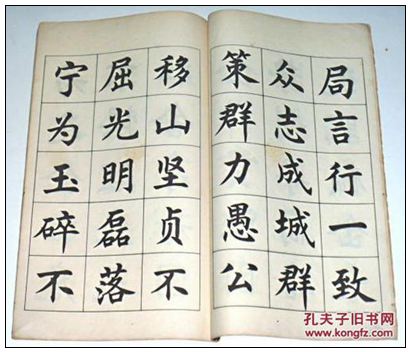 局言行一致
众志成城群
策群力愚公
移山坚贞不
屈光明磊落
宁为玉碎不
孔夫子旧书网
www.kongfz.com